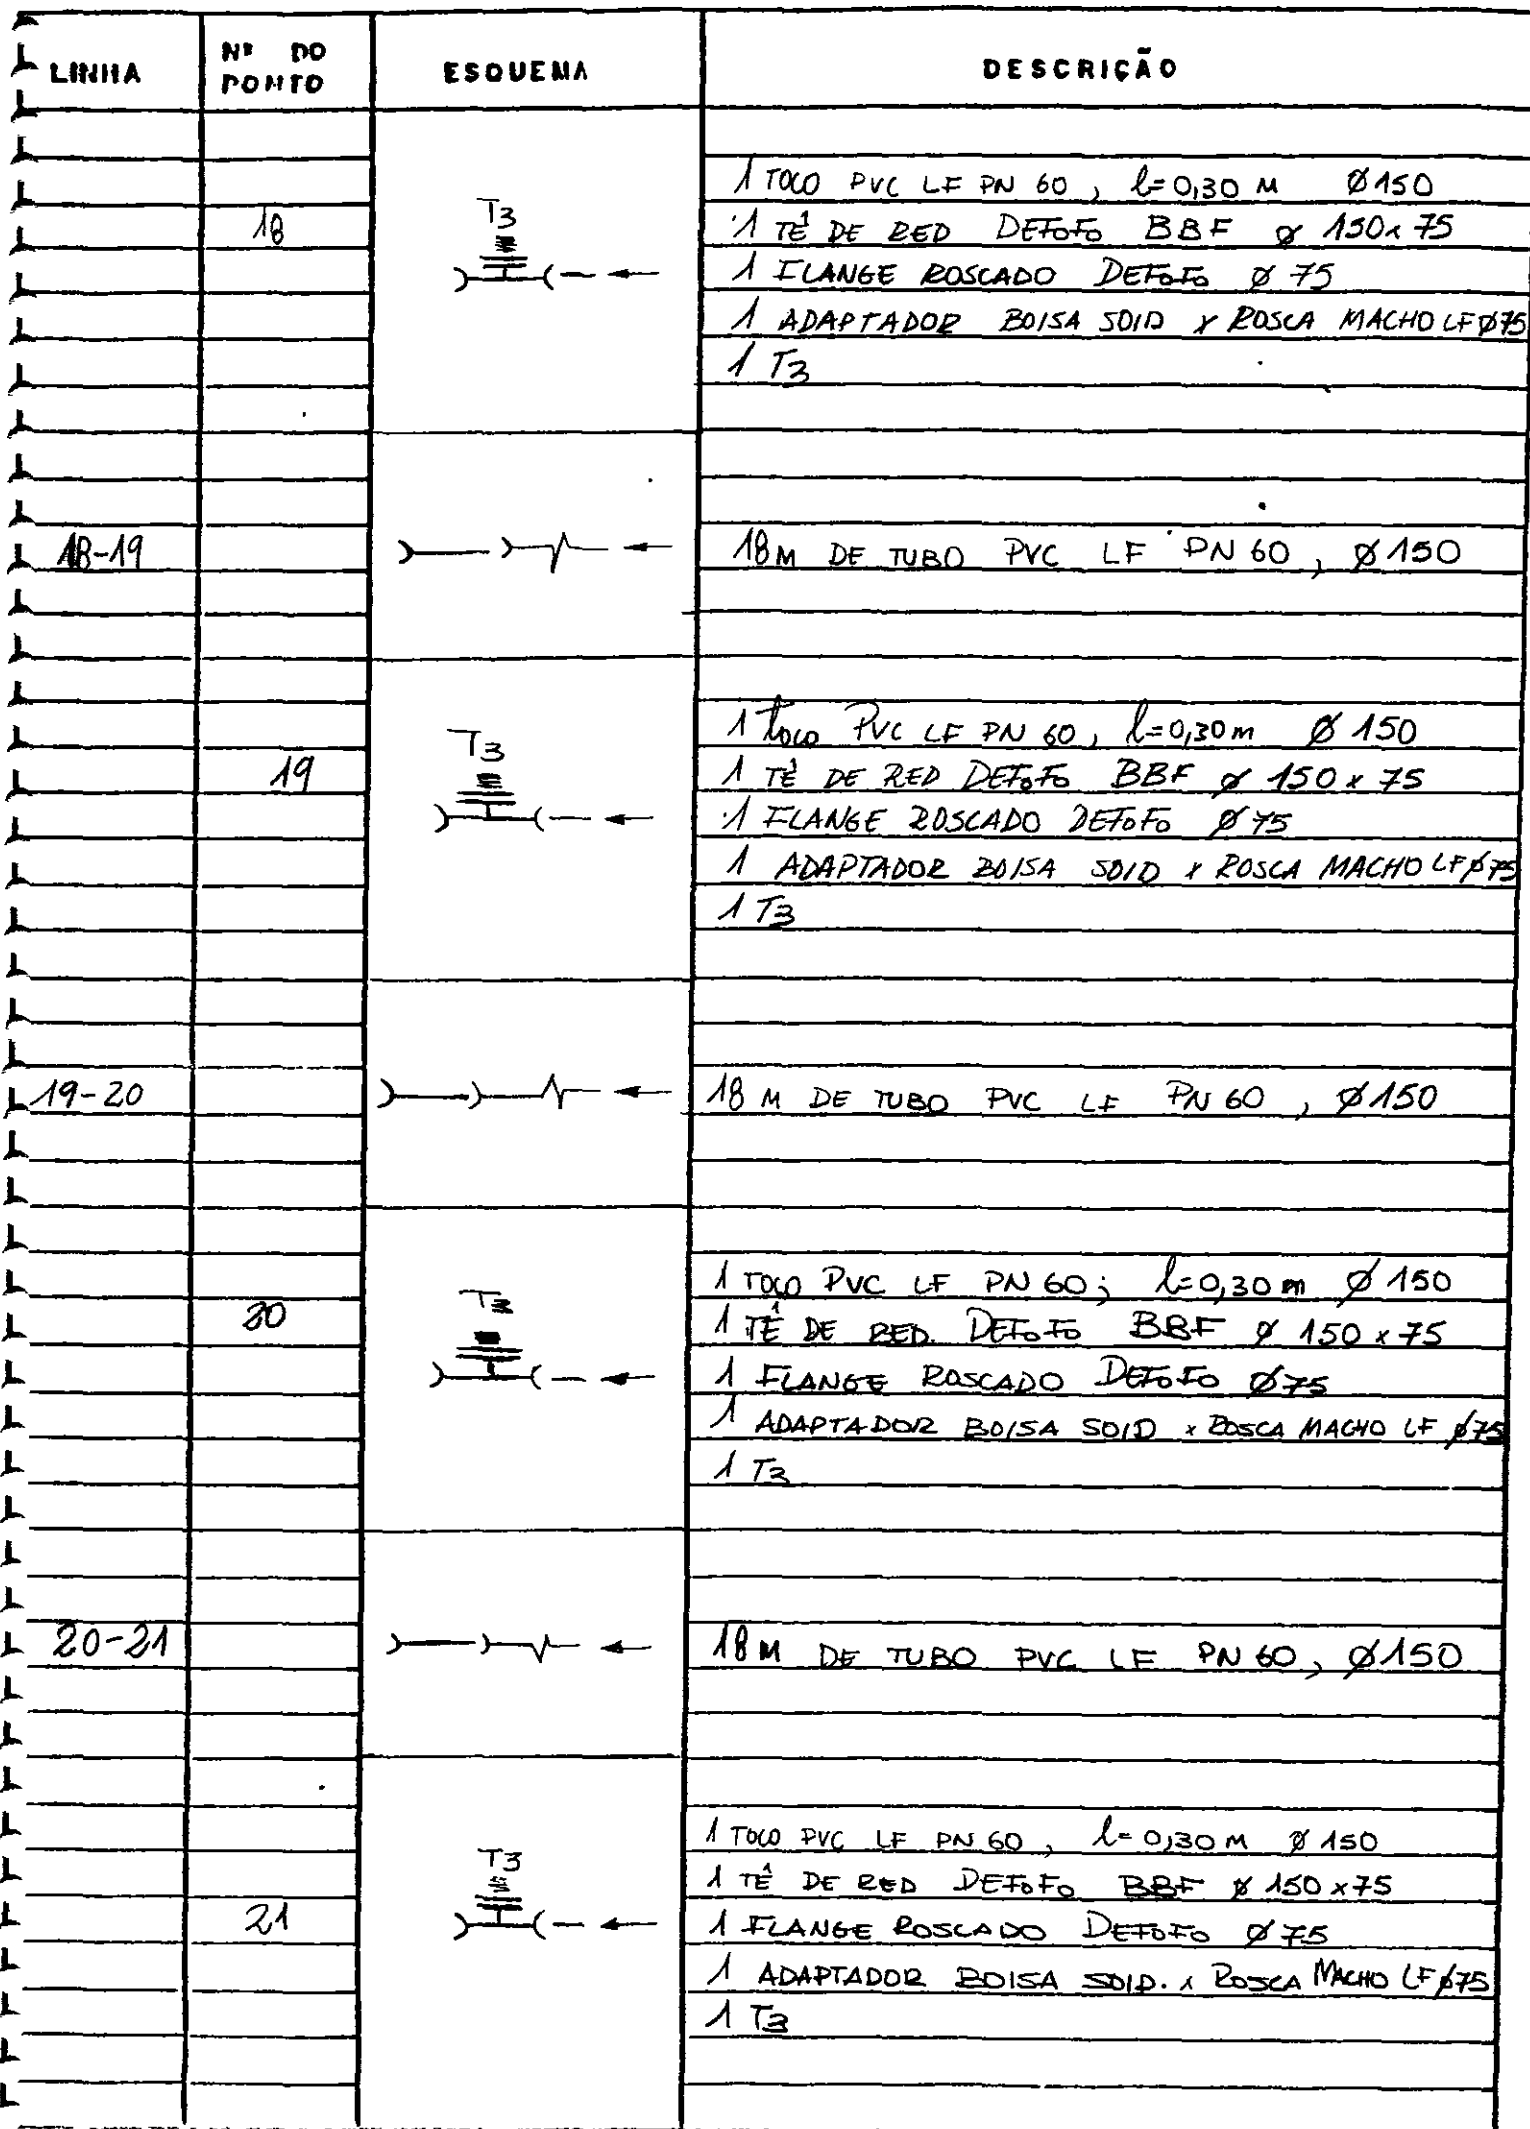 LINHA
Nº DO PONTO
ESQUEMA
DESCRIÇÃO
18
T3
1 TOCO PVC LF PN 60, l=0,30 M Ø150
1 TÊ DE RED DEFOFO BBF Ø 150x75
1 FLANGE ROSCADO DEFOFO Ø 75
1 ADAPTADOR BOLSA SOLD x ROSCA MACHO LF Ø75
1 T3
18-19
18M DE TUBO PVC LF PN 60, Ø150
19
T3
1 TOCO PVC LF PN 60, l=0,30m Ø 150
1 TÊ DE RED DEFOFO BBF Ø 150 x 75
1 FLANGE ROSCADO DEFOFO Ø 75
1 ADAPTADOR BOLSA SOLD x ROSCA MACHO LF Ø75
1 T3
19-20
18 M DE TUBO PVC LF PN 60, Ø150
20
T3
1 TOCO PVC LF PN 60; l=0,30 m Ø 150
1 TÊ DE RED. DEFOFO BBF Ø 150 x 75
1 FLANGE ROSCADO DEFOFO Ø75
1 ADAPTADOR BOLSA SOLD x ROSCA MACHO LF Ø75
1 T3
20-21
18M DE TUBO PVC LF PN 60, Ø150
21
T3
1 TOCO PVC LF PN 60, l=0,30 M Ø 150
1 TÊ DE RED DEFOFO BBF Ø 150 x 75
1 FLANGE ROSCADO DEFOFO Ø 75
1 ADAPTADOR BOLSA SOLD. x ROSCA MACHO LF Ø75
1 T3